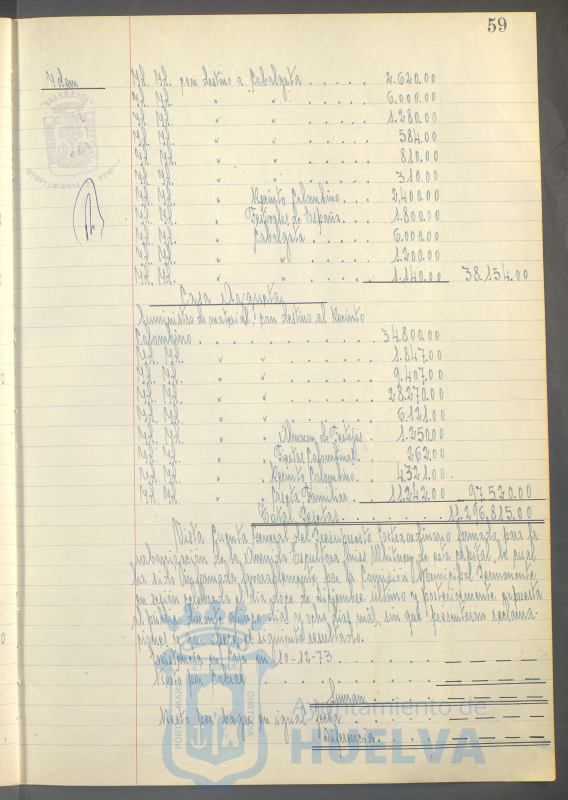 59
Id. Id. con destino a Cabalgata . . . . . . 2.620.00
Id. Id. " " . . . . . . 6.000.00
Id. Id. " " . . . . . . 1.280.00
Id. Id. " " . . . . . . 584.00
Id. Id. " " . . . . . . 810.00
Id. Id. " " . . . . . . 310.00
Id. Id. " Recinto Colombino . . . 2.400.00
Id. Id. " Festivales de España . . . 1.800.00
Id. Id. " Cabalgata . . . . . 6.000.00
Id. Id. " " . . . . . 1.200.00
Id. Id. " " . . . . . 1.140.00 38.154.00
Casa
Suministro de material, con destino al Recinto
Colombino . . . . . . . . . . 34.800.00
Id. Id. " " . . . . . . . 1.847.00
Id. Id. " " . . . . . . . 9.407.00
Id. Id. " " . . . . . . . 28.270.00
Id. Id. " " . . . . . . . 6.121.00
Id. Id. " Almacen de Festejos . 1.250.00
Id. Id. " Fiestas Colombinas . 262.00
Id. Id. " Recinto Colombino . . 4.321.00
Id. Id. " Caseta Familiar . . 11.242.00 97.520.00
Total Pesetas . . . . . . . . 11.296.815.00
Vista Cuenta General del Presupuesto Extraordinario formado para la
urbanización de la Avenida Escultora Miss Whitney de esta capital, la cual
ha sido informada por la Comisión Municipal Permanente
en sesión celebrada el día doce de diciembre último y posteriormente expuesta
al público durante quince días y ocho días más, sin que se presentaran reclama-
ciones, y que ofrece el siguiente resultado.
Existencia en Caja en 10-12-73 . . . . . . . .
Resto por cobrar . . . . . . . .
Suman . . . . . . .
Resto por pagar en igual fecha . . . . . .
Diferencia . . . . . .
Ayuntamiento de
HUELVA